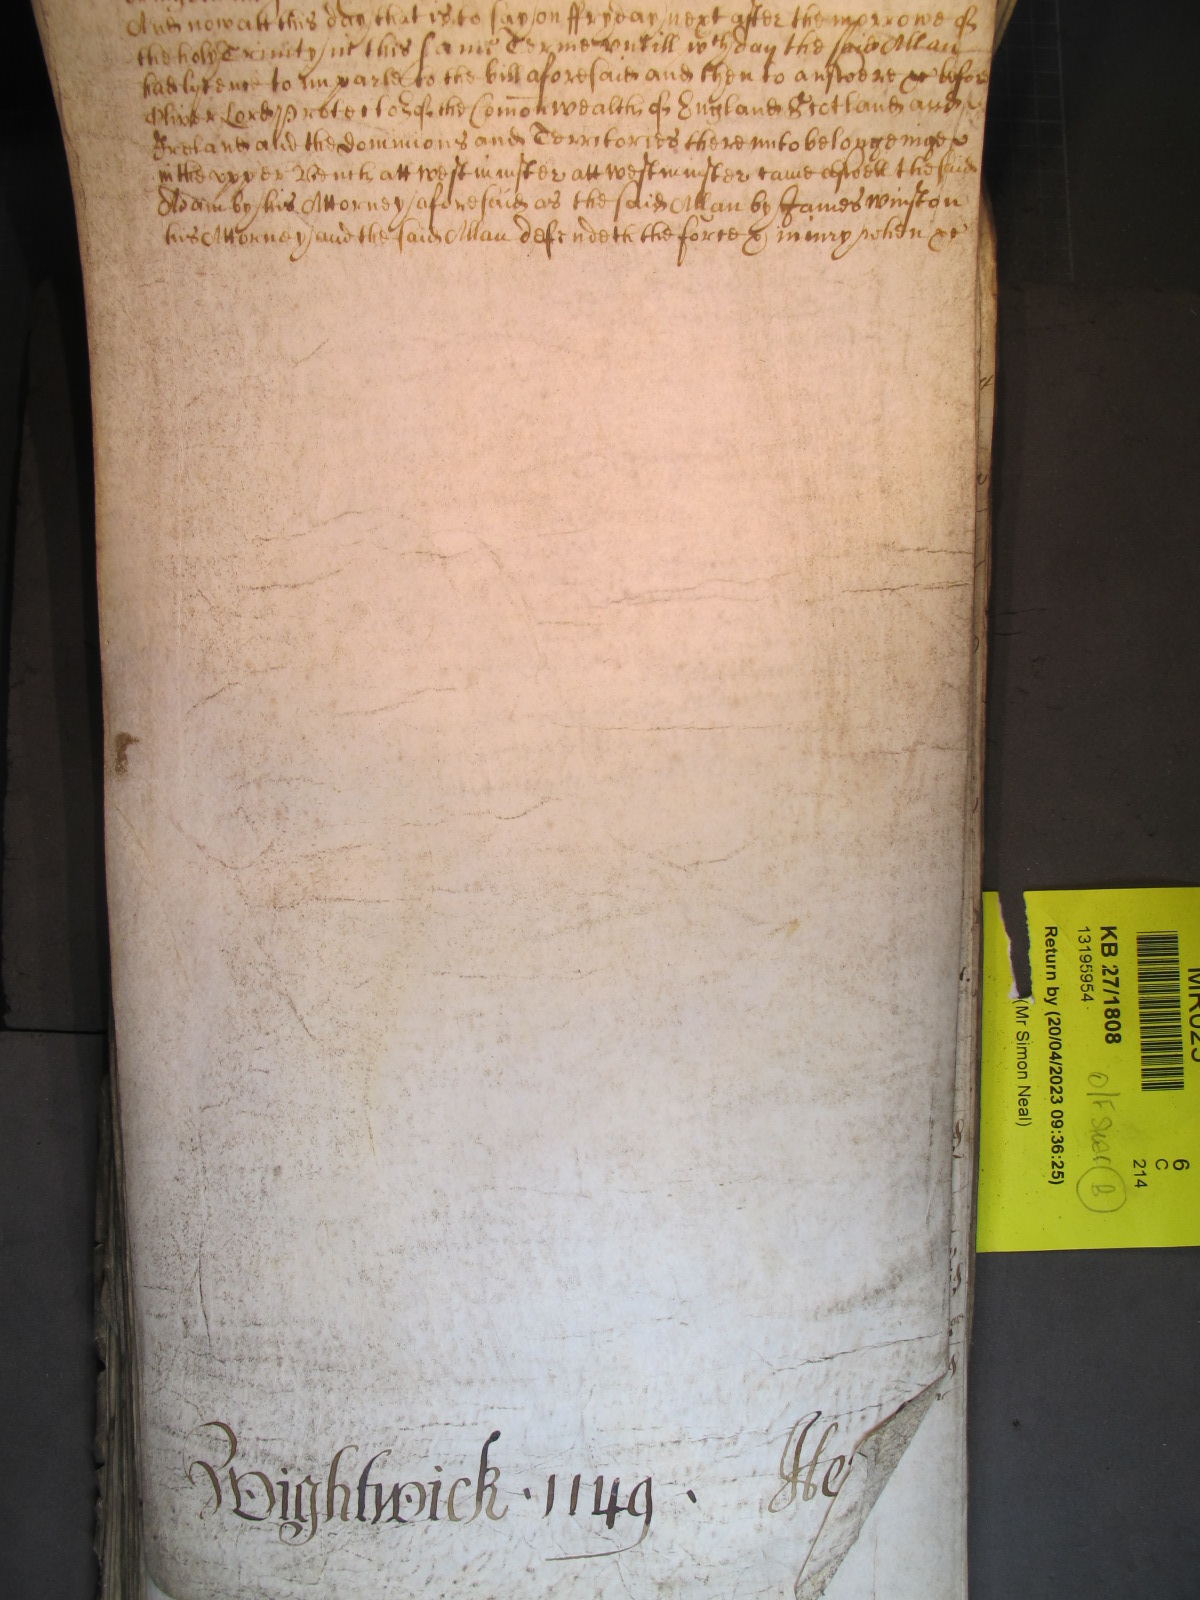 And now att this day that is to say on ffryday next after the morrowe of
the holy Trinity in this same Terme untill wch day the said Allan
had lycence to imparle to the bill aforesaid and then to answere &c before
Oliver Lord Protector of the Comonwealth of England Scotland and
Ireland and the dominions and Territories thereunto belongeinge
in the upper Bench att westminster att westminster came aswell the said
Adam by his Attorney aforesaid as the said Allan by James Winston
his Attorney and the said Allan defendeth the force & iniury when &c
Wightwick · 1149 ·
MR025
6
C
214
KB 27/1808
13195954
O/F
B
Return by (20/04/2023 09:36:25)
(Mr Simon Neal)